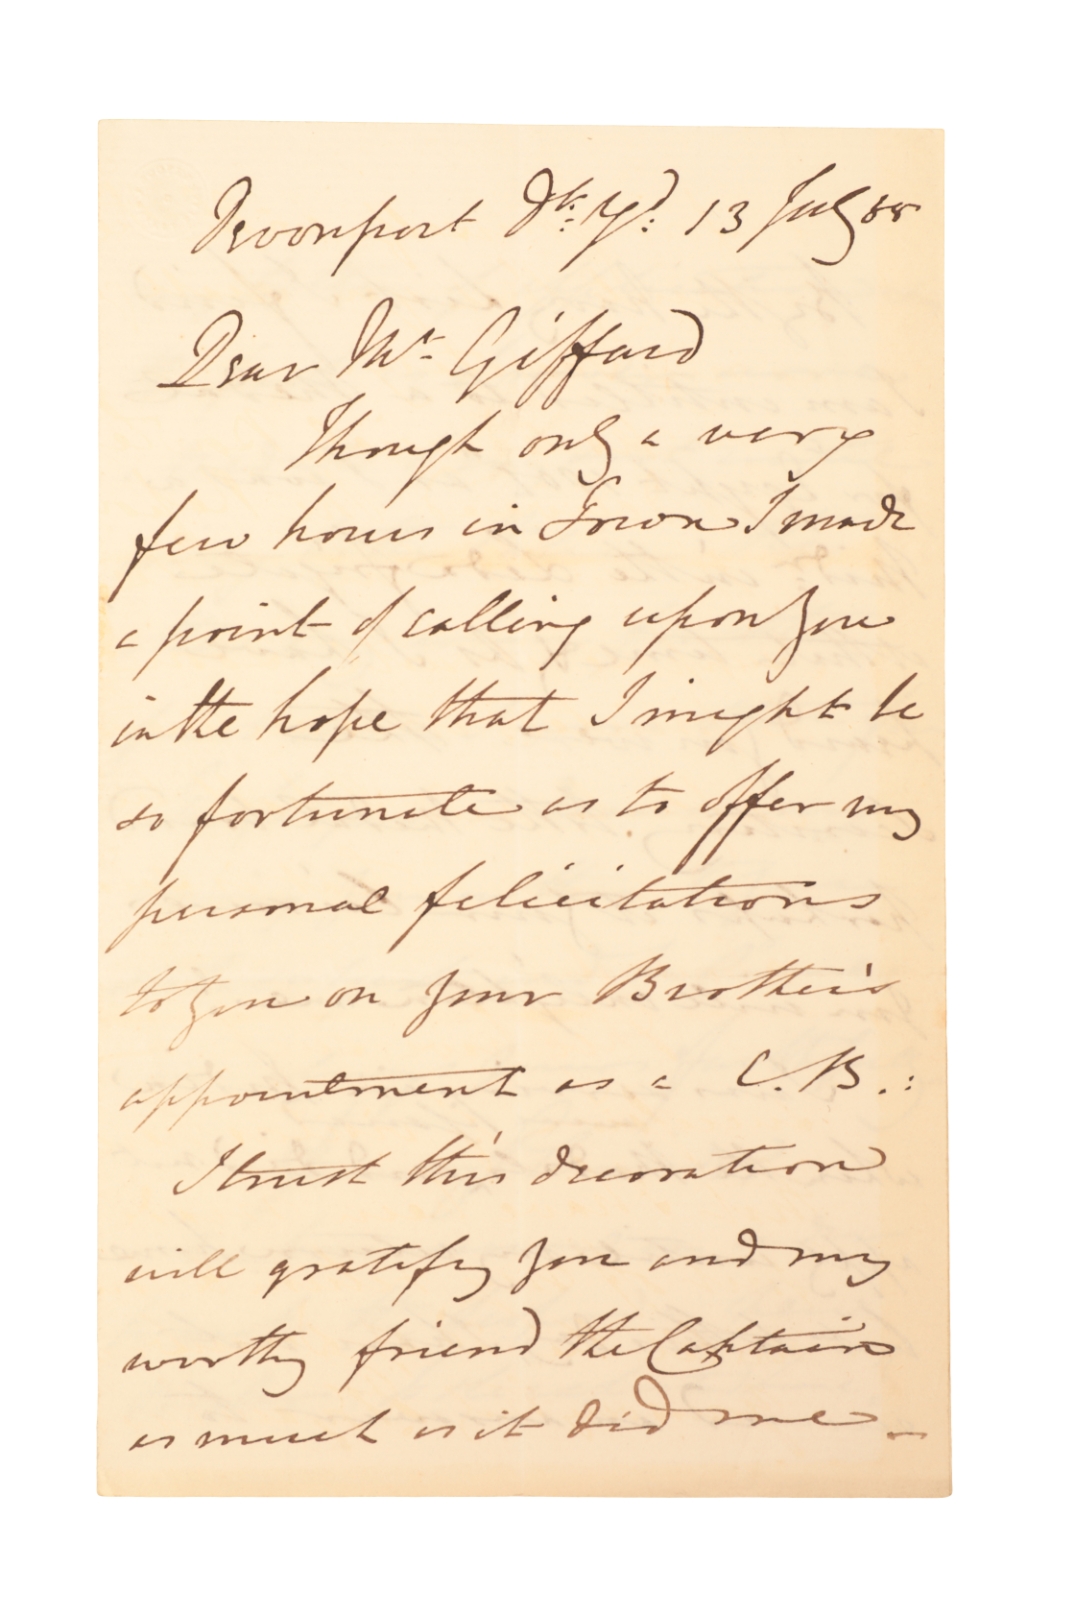 Devonport Dk: Yd: 13 July 55
Dear Mr Giffard
Though only a very
few hours in Town I made
a point of calling upon you
in the hope that I might be
so fortunate as to offer my
personal felicitations
to you on your Brother's
appointment as a C.B.:
I trust this decoration
will gratify you and my
worthy friend the Captain
as much as it did me_